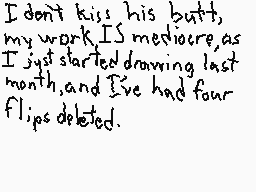 I don't kiss his butt,
my work, IS mediocre, as
I just started drawing last
month, and I've had four
flips deleted.